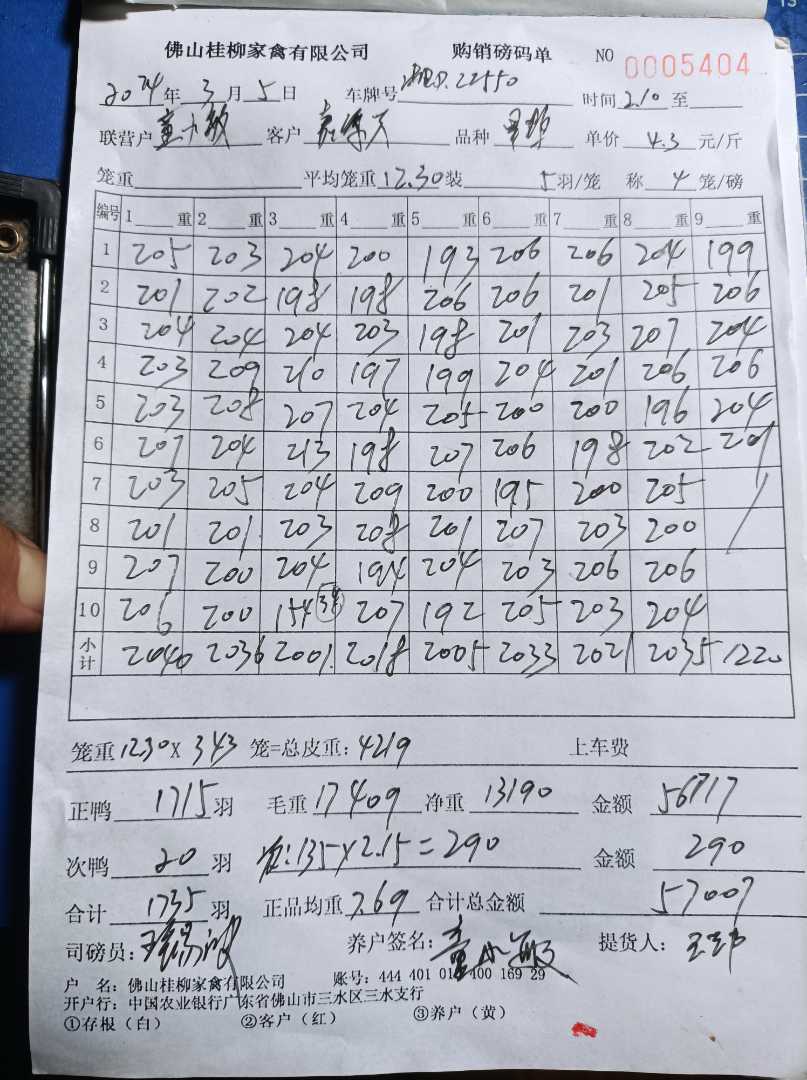 佛山桂柳家禽有限公司 购销磅码单 NO 0005404
2024年3月5日 车牌号 22550 时间 2.10 至
联营户 童小敏 客户 品种 单价 4.3 元/斤
笼重 平均笼重 12.30 装 5羽/笼 称 4 笼/磅
编号 1 重 2 重 3 重 4 重 5 重 6 重 7 重 8 重 9 重
1 205 203 204 200 193 206 206 204 199
2 201 202 198 198 206 206 201 205 206
3 204 204 204 203 198 201 203 207 204
4 203 209 210 197 199 204 201 206 206
5 203 208 207 204 205 200 200 196 204
6 207 204 213 198 207 206 198 202 201
7 203 205 204 209 200 195 200 205
8 201 201 203 208 201 207 203 200
9 207 200 204 194 204 203 206 206
10 206 200 154 38 207 192 205 203 204
小计 2040 2036 2001 2018 2005 2033 2021 2035 1220
笼重 1230 X 343 笼=总皮重: 4219 上车费
正鸭 1715 羽 毛重 17409 净重 13190 金额 56717
次鸭 20 羽 次: 135 X 2.15 = 290 金额 290
合计 1735 羽 正品均重 7.69 合计总金额 57007
司磅员: 养户签名: 童小敏 提货人:
户 名: 佛山桂柳家禽有限公司 账号: 444 401 01 400 169 29
开户行: 中国农业银行广东省佛山市三水区三水支行
①存根(白) ②客户(红) ③养户(黄)